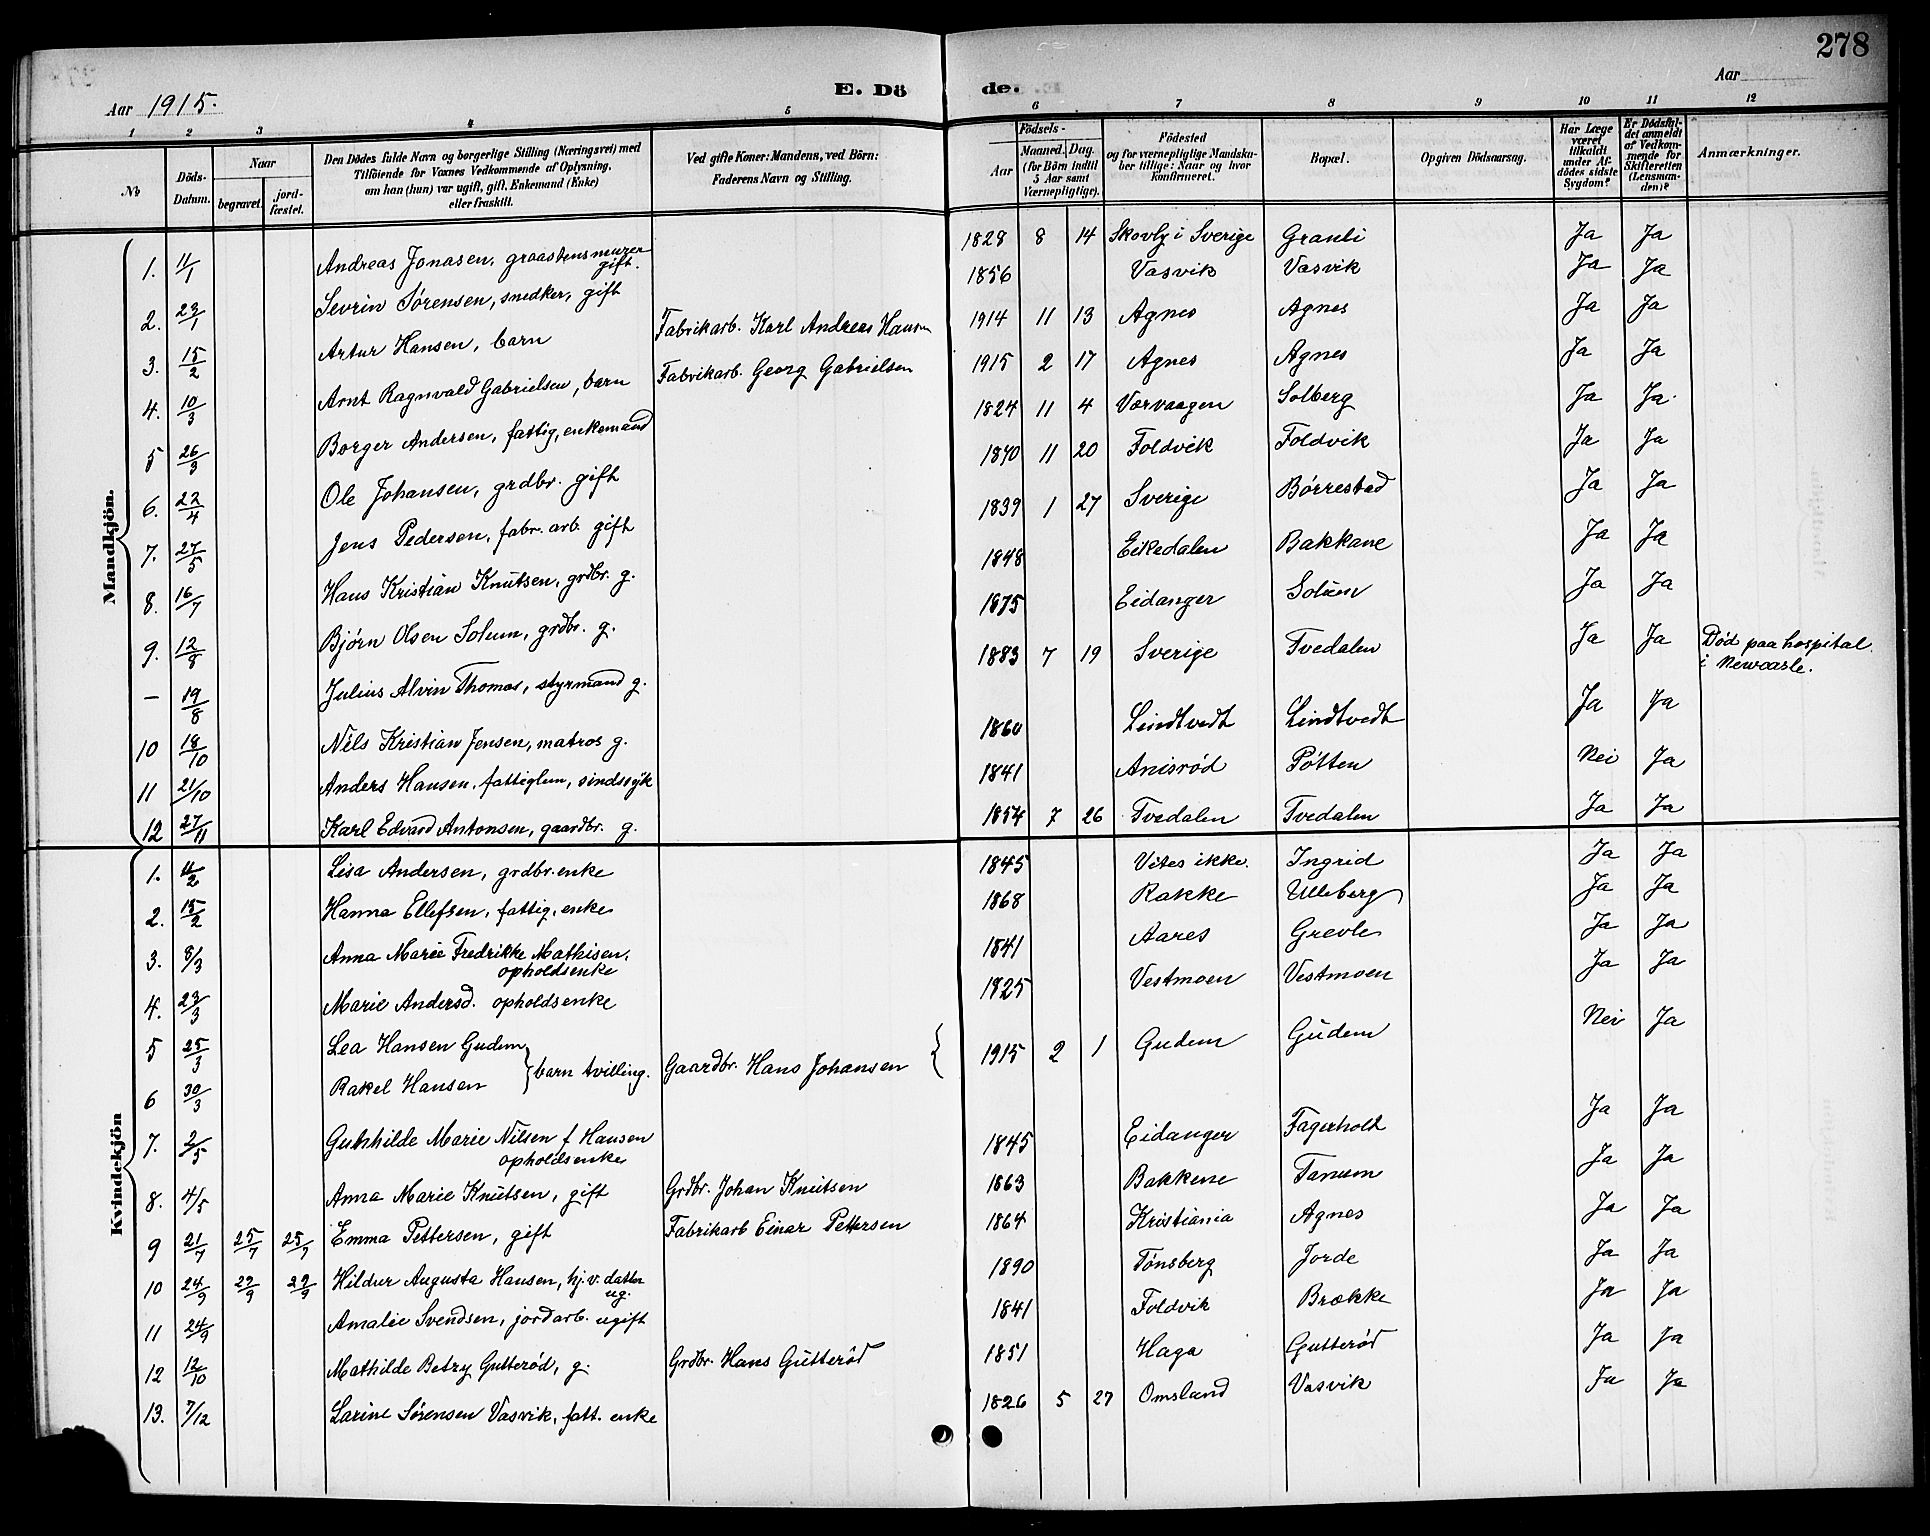 278
Aar 1915.
E. Döde.
Aar
1 2 3 4 5 6 7 8 9 10 11 12
No
Döds-Datum.
Naar
begravet.
jordfæstet.
Den Dödes fulde Navn og borgerlige Stilling (Næringsvei) med
Tilföiende for Voxnes Vedkommende af Oplysning,
om han (hun) var ugift, gift, Enkemand (Enke)
eller fraskilt.
Ved gifte Koner: Mandens, ved Börn:
Faderens Navn og Stilling.
Födsels-
Aar
Maaned. Dag.
(for Börn indtil
5 Aar samt
Værnepligtige).
Födested
og for værnepligtige Mandskaber tillige: Naar og hvor
Konfirmeret.
Bopæl.
Opgiven Dödsaarsag.
Har Læge
været
tilkaldt
under Afdödes sidste
Sygdom?
Er Dödsfaldet anmeldt
af Vedkommende for
Skifteretten
(Lensmanden)?
Anmærkninger.
Mandkjön.
1. 11/1 Andreas Jonasen, graastensmurer gift. 1828 8 14 Skovby i Sverige Granli Ja Ja
2. 23/1 Sevrin Sørensen, snedker, gift 1856 Vasvik Vasvik Ja Ja
3. 15/2 Artur Hansen, barn Fabrikarb. Karl Andreas Hansen 1914 11 13 Agnes Agnes Ja Ja
4. 10/3 Arnt Ragnvald Gabrielsen, barn Fabrikarb. Georg Gabrielsen 1915 2 17 Agnes Agnes Ja Ja
5 26/3 Borger Andersen, fattig, enkemand 1824 11 4 Vorvaagen Solberg Ja Ja.
6. 22/4 Ole Johansen, grdbr. gift 1840 11 20 Foldvik Foldvik Ja Ja
7. 27/5 Jens Pedersen, fabr. arb. gift 1839 1 27 Sverige Børrestad Ja Ja
8. 16/7 Hans Kristian Knutsen, grdbr. g. 1848 Eikedalen Bakkane Ja Ja
9. 12/8 Bjørn Olsen Solum, grdbr. g. 1875 Eidanger Solum Ja Ja
– 19/8 Julius Alvin Thomas, styrmand g. 1883 7 19 Sverige Tvedalen Ja Ja Død paa hospital i Newcasle.
10 18/10 Nils Kristian Jensen, matros g. 1860 Lindtvedt Lindtvedt Ja Ja
11 21/10 Anders Hansen, fattiglem, sindssyk 1841 Anisrød Pøtten Nei Ja
12 27/11 Karl Edvard Antonsen, gaardbr. g. 1854 7 26 Tvedalen Tvedalen Ja Ja
Kvindekjön
1. 11/2 Lisa Andersen, grdbr.enke 1845 Vites ikke. Ingrid Ja Ja
2. 15/2 Hanna Ellefsen, fattig, enke 1868 Rakke Ulleberg Ja Ja
3. 8/3 Anna Marie Fredrikke Mathisen, opholdsenke 1841 Aares Grevle Ja Ja
4. 23/3 Marie Andersd. opholdsenke 1825 Vestmoen Vestmoen Ja Ja
5 25/3 Lea Hansen Gudem
6 30/3 Rakel Hansen } barn tvilling. Gaardbr. Hans Johansen { 1915 2 1 Gudem Gudem Nei Ja
7. 2/5 Gunhilde Marie Nilsen f Hansen opholdsenke 1845 Eidanger Fagerholt Ja Ja
8. 4/5 Anna Marie Knutsen, gift Grdbr. Johan Knutsen 1863 Bakkene Tanum Ja Ja
9 21/7 25/7 25/7 Emma Pettersen, gift Fabrikarb Einar Pettersen 1864 Kristiania Agnes Ja Ja
10 24/9 29/9 29/9 Hildur Augusta Hansen, hj.v. datter ug. 1890 Tønsberg Jorde Ja Ja
11 24/9 Amalie Svendsen, jordarb. ugift 1841 Foldvik Brække Ja Ja
12 12/10 Mathilde Betzy Gutterød, g. Grdbr. Hans Gutterød 1851 Haga Gutterød Ja Ja
13. 7/12 Larine Sørensen Vasvik, fatt. enke 1826 5 27 Omsland Vasvik Ja Ja